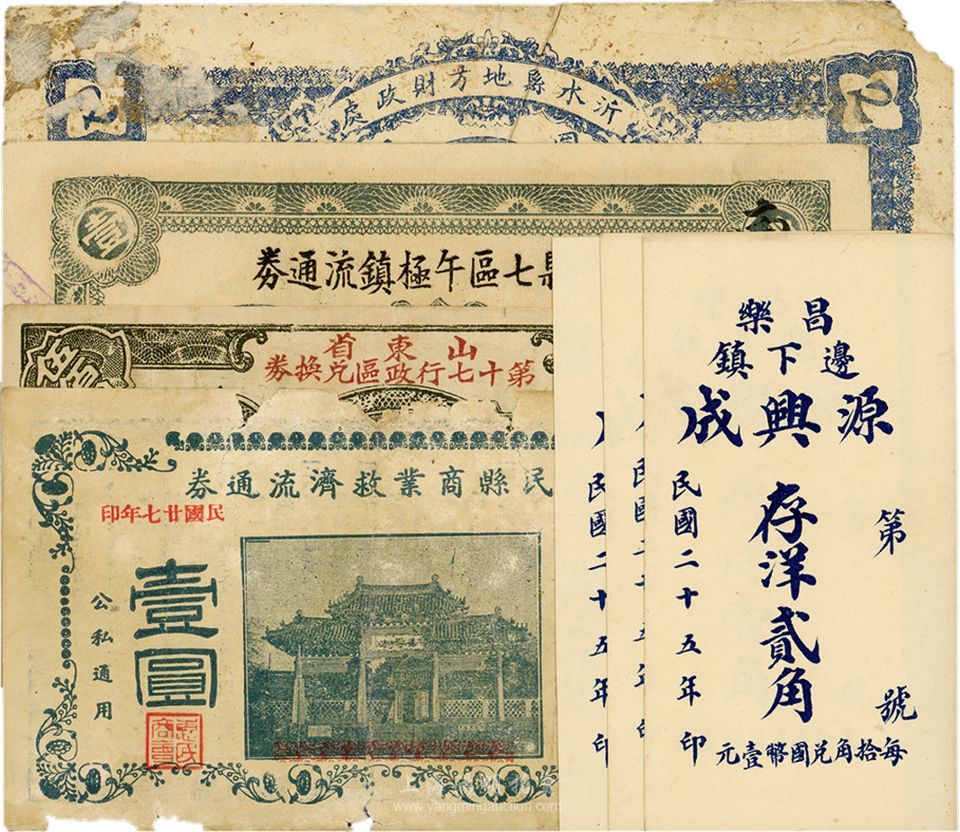 沂水縣地方財政處
壹
縣七區午極鎮流通券
伍
山東省
第十七行政區兌換券
民縣商業救濟流通券
民國廿七年印
壹圓
公私通用
昌樂
邊下鎮
源興成
第 號
存洋貳角
民國二十五年印
每拾角兌國幣壹元
民國二十五年印
www.yangmingauction.com